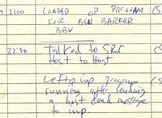 2100 LOADED OP. PROGRAM CS
FOR BEN BARKER
BBV
22:30 Talked to SRI CS
Host to Host
Left op. imp. program CS
running after sending
a host dead message
to imp.